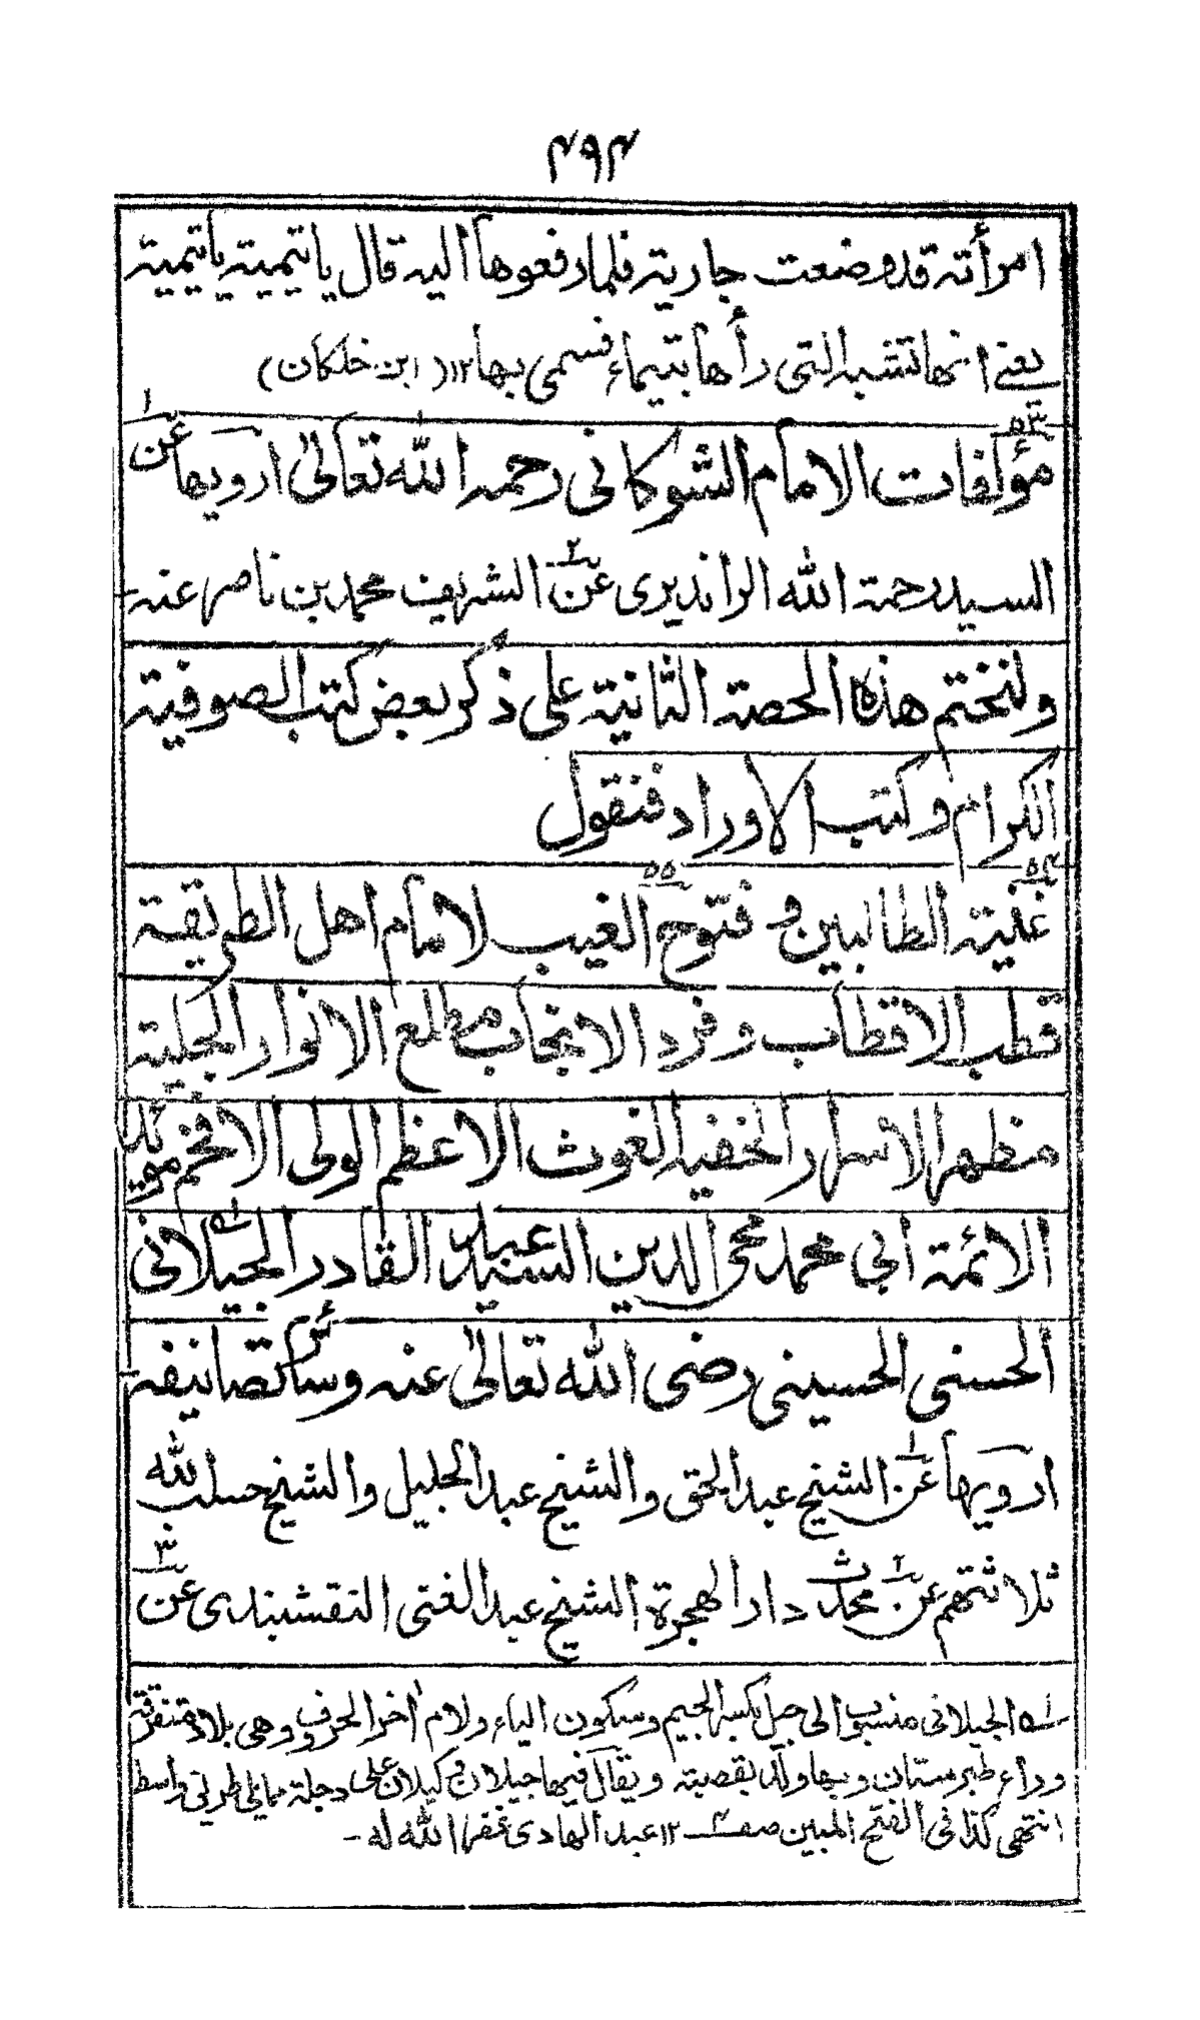 ۴۹۴
امرأته قد وضعت جارية فلما رفعوها اليه قال يا تيمية يا تيمية
يعنى انها تشبه التى رأها بتيماء فسمى بها ۱۲ (ابن خلكان)
۵۳ مؤلفات الامام الشوكانى رحمه الله تعالىٰ ارويها عن۱
السيد رحمة الله الرانديرى عن۲ الشريف محمد بن ناصر عنه
ولنختم هذه الحصة الثانية على ذكر بعض كتب الصوفية
الكرام وكتب الاوراد فنقول
۵۴ غنية الطالبين و ۵۵ فتوح الغيب لامام اهل الطريقة
قطب الاقطاب و فرد الانجاب مطلع الانوار الجلية
مظهر الاسرار الخفية الغوث الاعظم الولى الافخم مويد
الائمة أبي محمد محى الدين السيد عبد القادر الجيلانى
الحسنى الحسينى رضى الله تعالىٰ عنه وسائر تصانيفه
ارويها عن۱ الشيخ عبد الحق والشيخ عبد الجليل والشيخ حسب الله
ثلاثتهم عن۲ محدث دار الهجرة الشيخ عبد الغنى النقشبندى عن۳
۱ه الجيلانى منسوب الى جيل بكسر الجيم وسكون الياء ولام اخر الحرف وهى بلاد متفرقة
وراء طبرستان وبها ولد بقصبته ويقال فيها جيلان و كيلان على دجلة مما يلى طريق واسط
انتهى كذا فى الفتح المبين صفـ ۱۲ عبد الهادى غفر الله له -